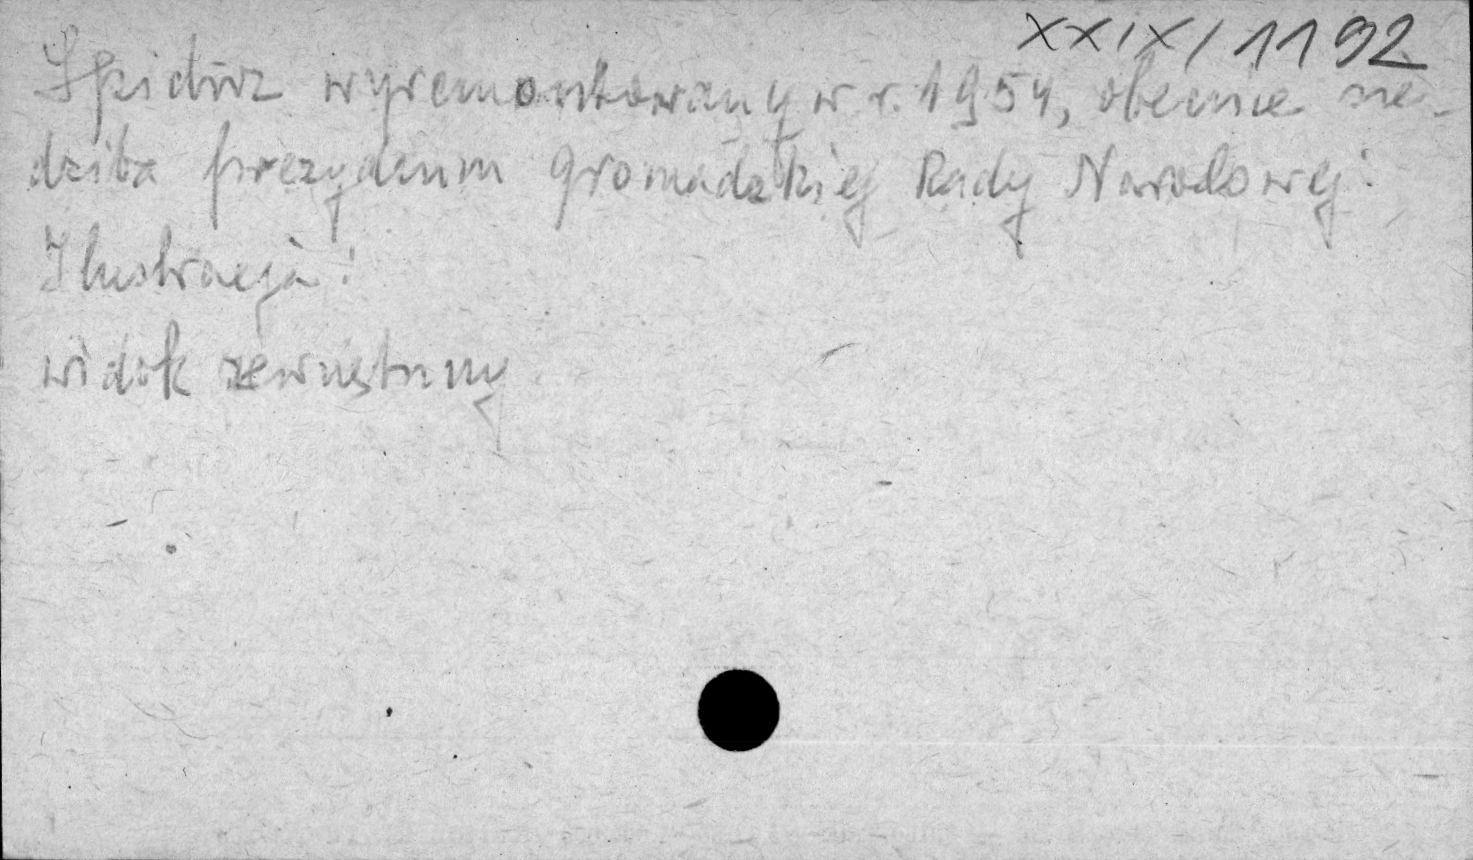 XXIX/1192
Spichrz wyremontowany w r. 1954, obecnie sie-
dziba prezydium Gromadzkiej Rady Narodowej.
Ilustracja:
widok zewnętrzny